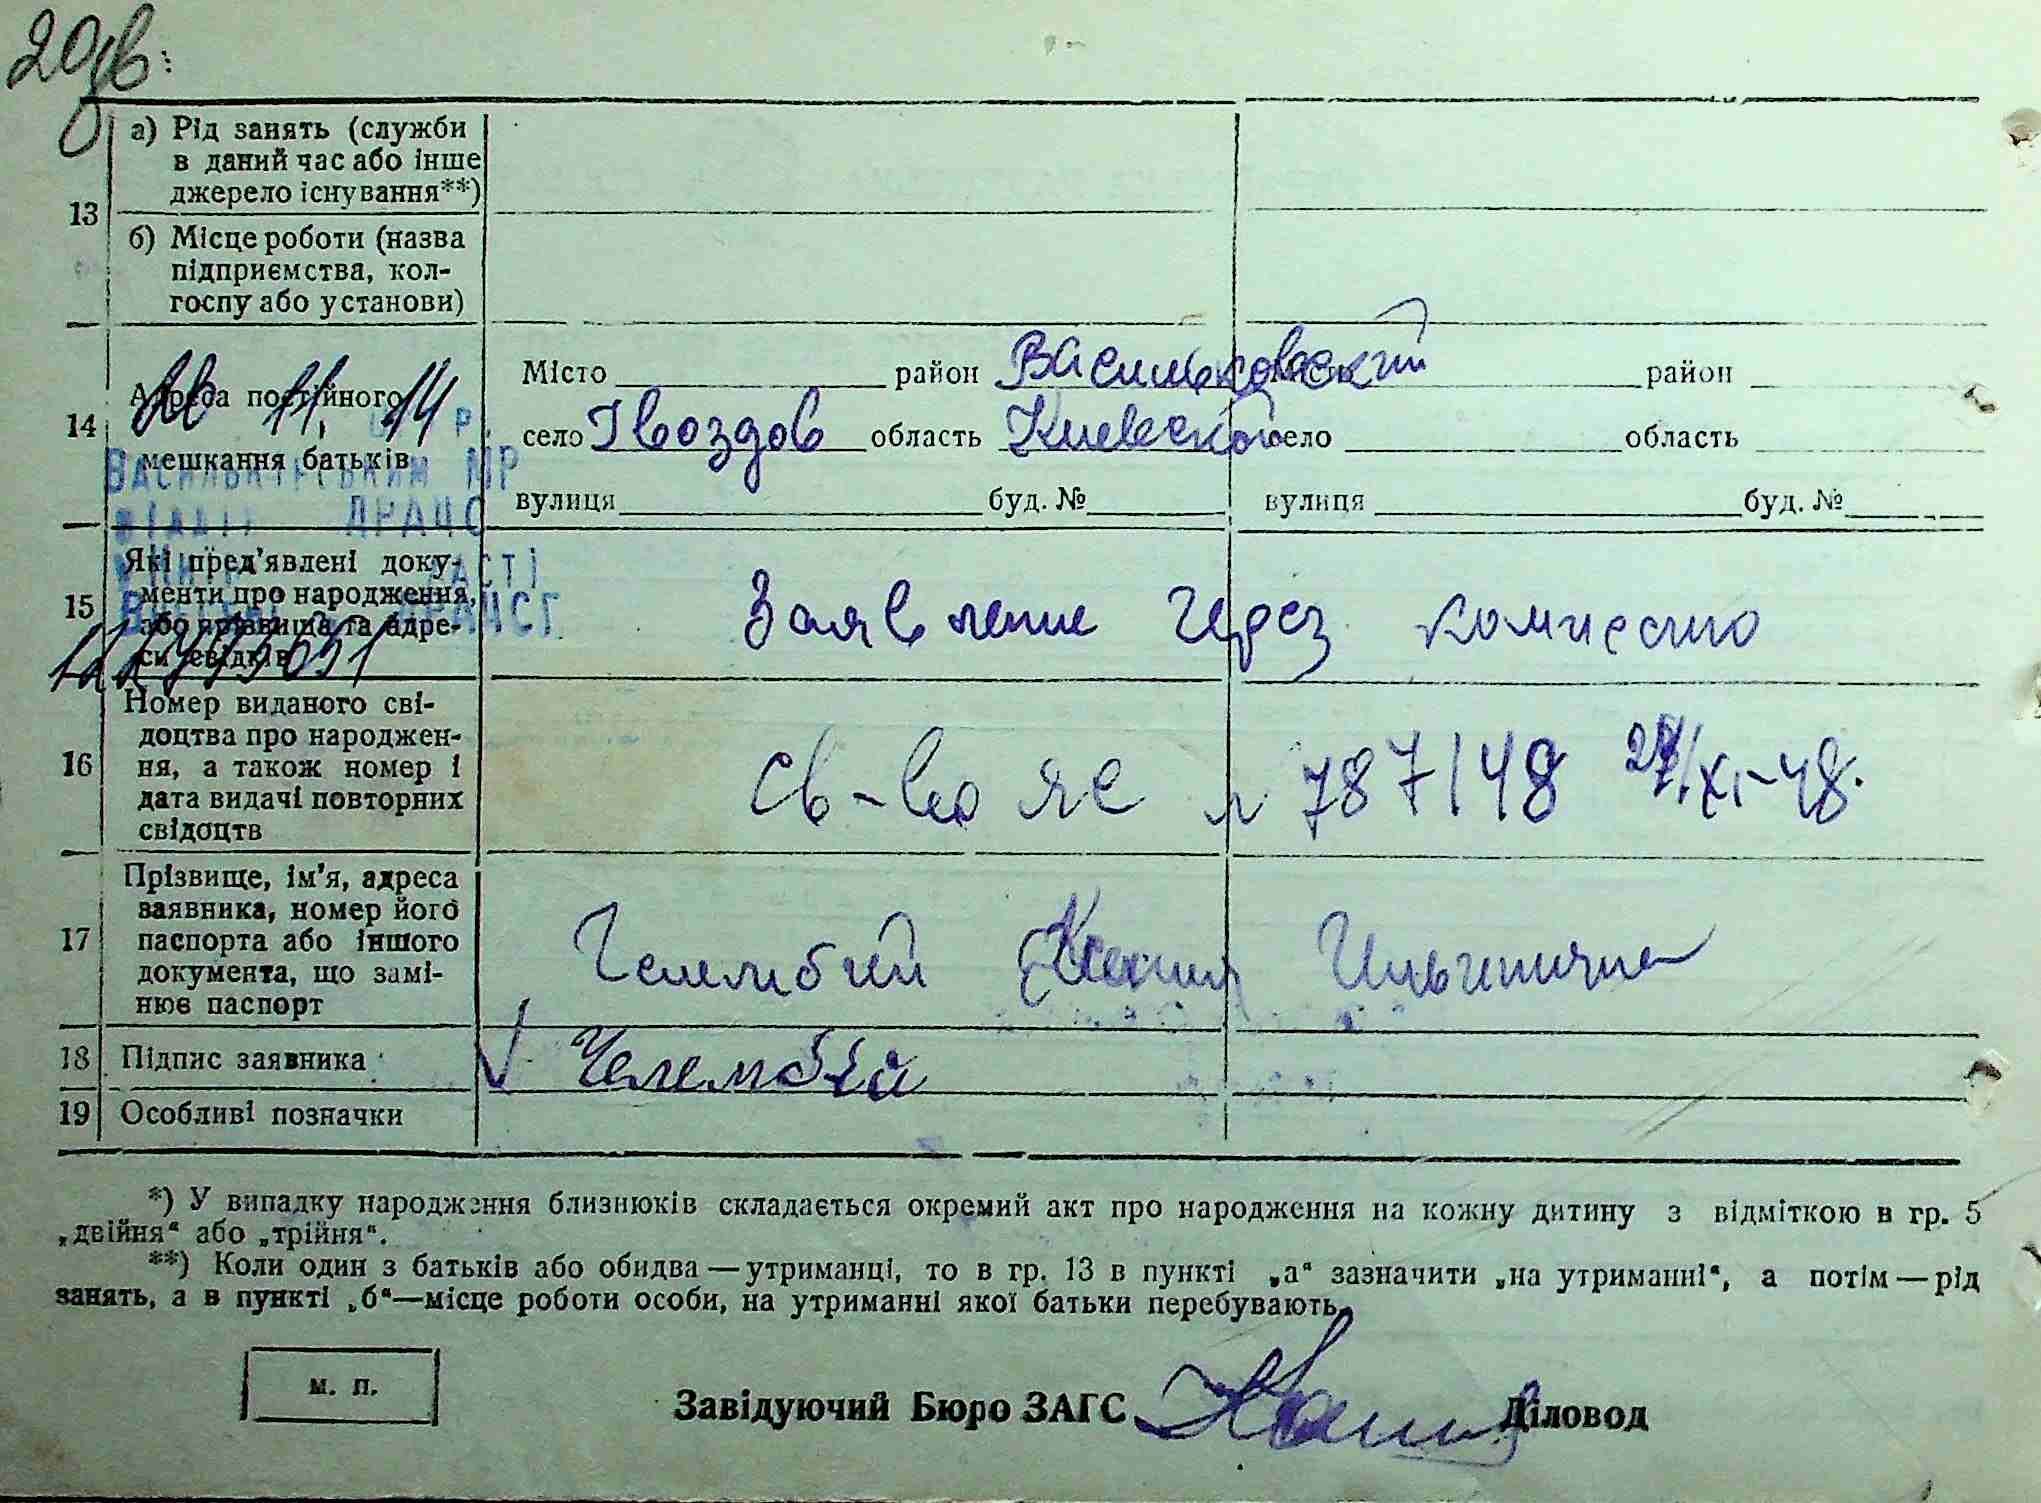 13
а) Рід занять (служби
в даний час або інше
джерело існування**)
б) Місце роботи (назва
підприємства, кол-
госпу або установи)
14
Адреса постійного
мешкання батьків
Місто район Васильковский район
село Гвоздов область Киевской село область
вулиця буд. № вулиця буд. №
ВАСИЛЬКІВСЬКИМ МР
ДРАЦС
15
Які пред'явлені доку-
менти про народження,
або прізвища та адре-
си свідків
Заявление через комиссию
16
Номер виданого сві-
доцтва про народжен-
ня, а також номер і
дата видачі повторних
свідоцтв
св-во ЯЕ № 787148 XI-48.
17
Прізвище, ім'я, адреса
заявника, номер його
паспорта або іншого
документа, що замі-
нює паспорт
Ксения
18 Підпис заявника
19 Особливі позначки
*) У випадку народження близнюків складається окремий акт про народження на кожну дитину з відміткою в гр. 5
„двійня“ або „трійня“.
**) Коли один з батьків або обидва — утриманці, то в гр. 13 в пункті „а“ зазначити „на утриманні“, а потім — рід
занять, а в пункті „б“—місце роботи особи, на утриманні якої батьки перебувають.
м. п.
Завідуючий Бюро ЗАГС Діловод